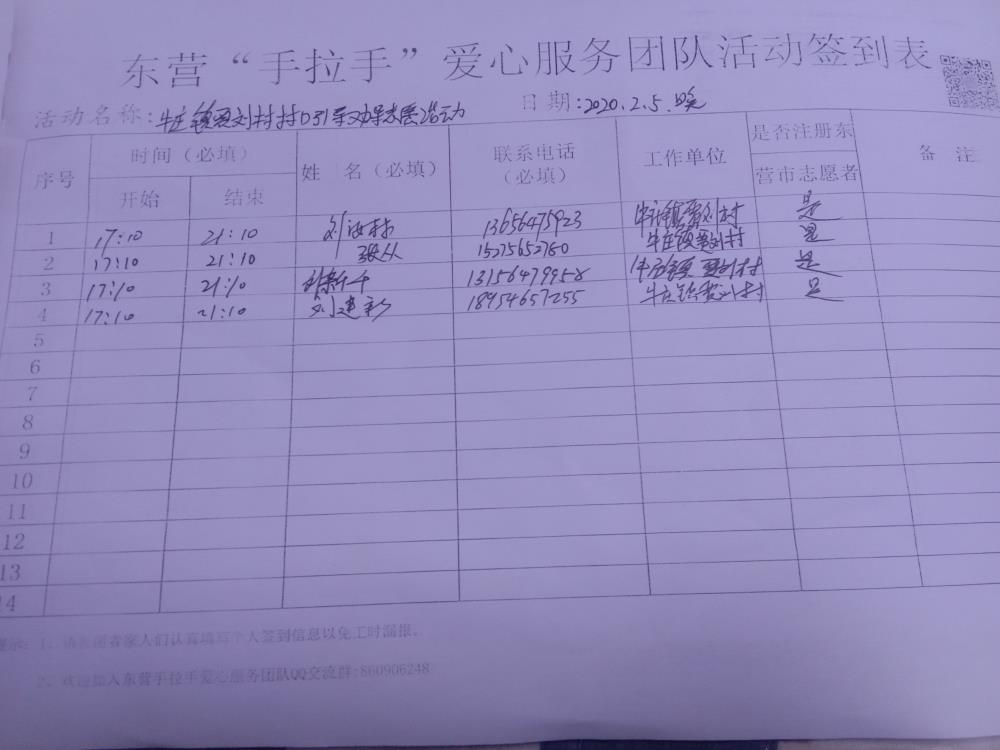 东营“手拉手”爱心服务团队活动签到表
活动名称:牛庄镇 刘村村口引导劝导志愿活动 日期:2020.2.5.晚
序号 时间（必填） 姓 名（必填） 联系电话（必填） 工作单位 是否注册东营市志愿者 备 注
开始 结束
1 17:10 21:10 刘 林 13656475923 牛庄镇 刘村 是
2 17:10 21:10 张从 15275652780 牛庄镇 刘村 是
3 17:10 21:10 13156479958 牛庄镇 刘村 是
4 17:10 21:10 刘建彩 18954657255 牛庄镇 刘村 是
5
6
7
8
9
10
11
12
13
14
提示: 1、请 家人们认真填写个人签到信息以免工时漏报。
2、欢迎加入东营手拉手爱心服务团队QQ交流群:860906248